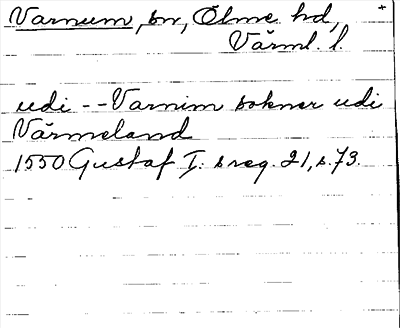 Varnum, sn, Ölme hd, +
Värml. l.
udi -- Varnim sokner udi
Värmeland
1550 Gustaf I:s reg. 21, s. 73.